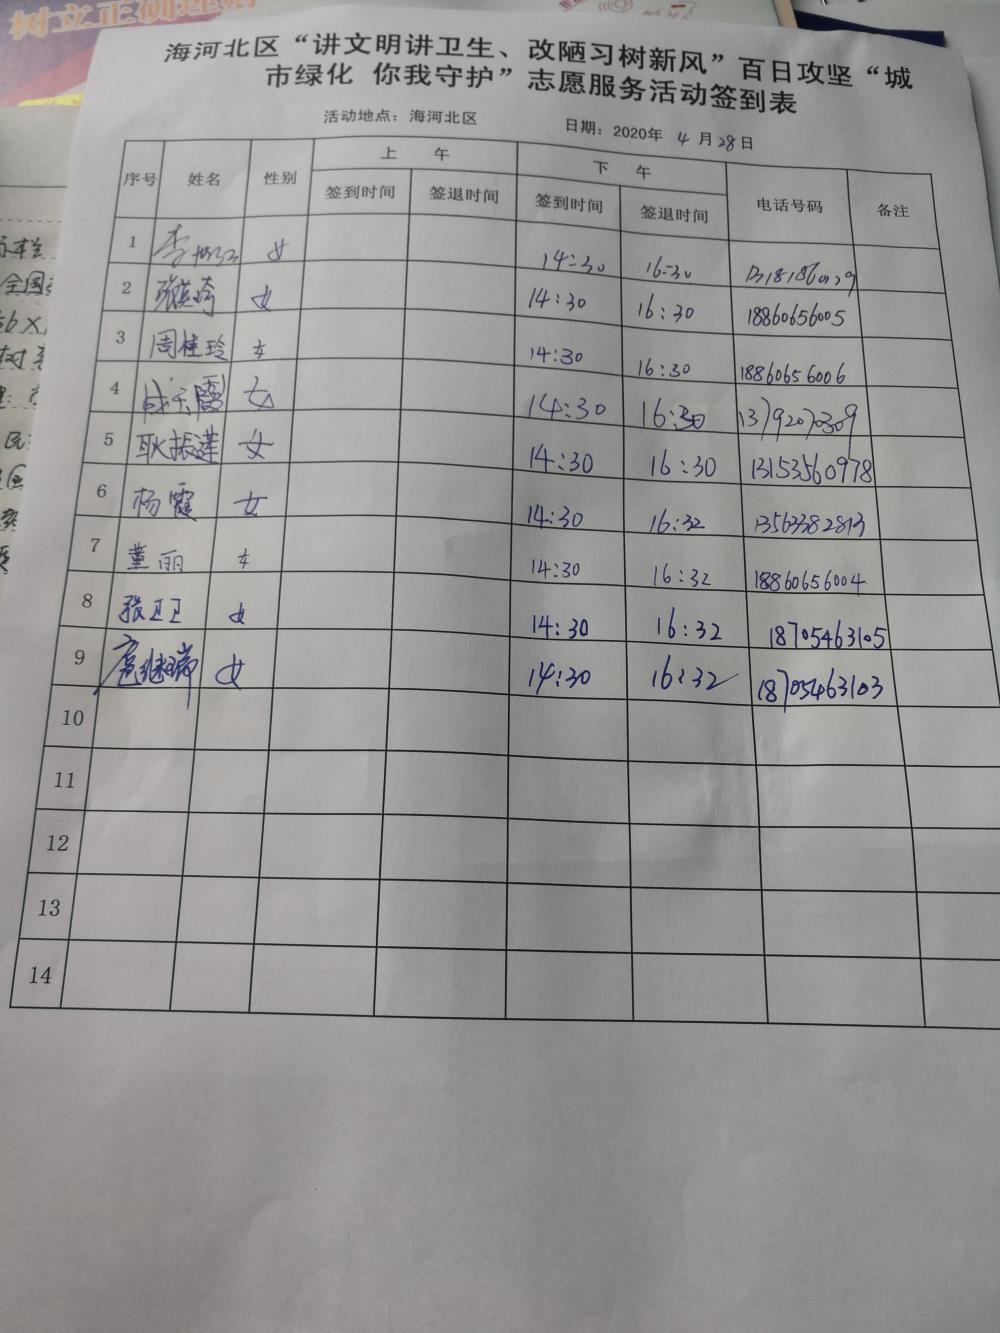 树立正确
海河北区“讲文明讲卫生、改陋习树新风”百日攻坚“城
市绿化 你我守护”志愿服务活动签到表
活动地点：海河北区 日期：2020年 4 月 28 日
序号 姓名 性别 上 午 下 午 电话号码 备注
签到时间 签退时间 签到时间 签退时间
1 女 14:30 16:30
2 女 14:30 16:30 18860656005
3 周桂玲 女 14:30 16:30 18860656006
4 女 14:30 16:30 13792070309
5 耿振莲 女 14:30 16:30 13153560978
6 杨霞 女 14:30 16:32 13563382813
7 董丽 女 14:30 16:32 18860656004
8 张卫卫 女 14:30 16:32 18705463105
9 女 14:30 16:32 18705463103
10
11
12
13
14
全国